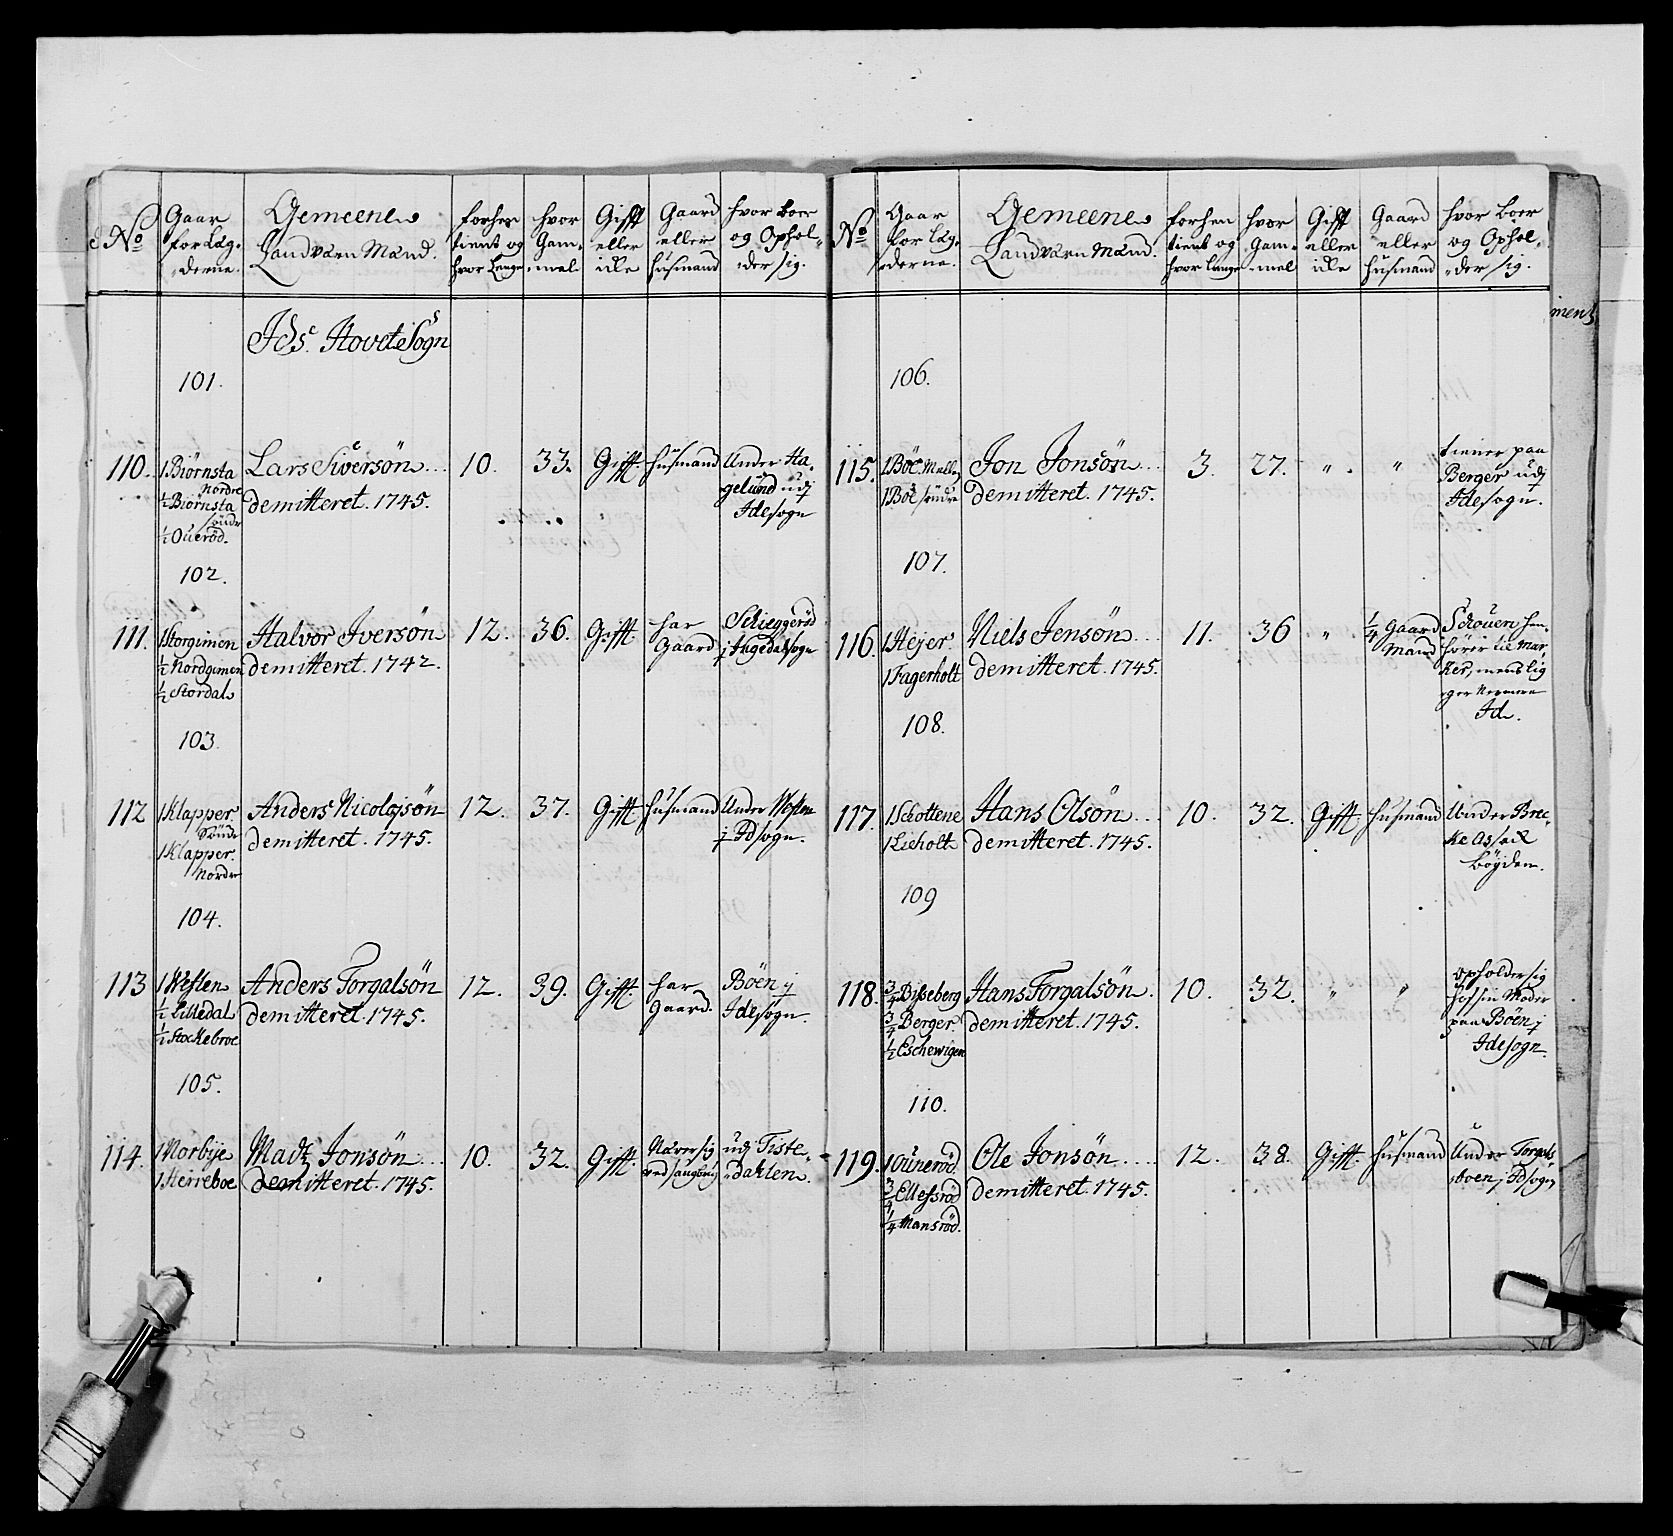 No
Gaar
for Læg-
derne.
Gemeene
Landværn Mænd.
forhen
tient og
hvor Længe
hvor
Gam-
mel
Gifft
eller
idle
Gaard
eller
Huusmand
hvor boer
og Ophol-
der sig.
Ids Hovet Sogn
101.
110.
1 Biørnsta
Nordre
1/2 Biørnsta
søndr
1/2 Ouerød.
Lars Siversøn
demitteret. 1745.
10.
33.
Gifft.
Huusmand
Under Ha-
gelund udj
Ide sogn
102.
111.
1 Storgimen
1/2 Nordgimen
1/2 Stordal
Halvor Iversøn
demitteret. 1742.
12.
36.
Gifft
har
Gaard
Schieggerød
j Aagedal sogn
103.
112
1 Klapper
Søndr
1 Klapper.
Nordre
Anders Nicolajsøn
demitteret. 1745.
12.
37.
Gifft
Huusmand
Under Westen
j Id sogn.
104.
113
1 Westen
1/2 Lilledal
1/2 Stockebroe
Anders Torgalsøn
demitteret. 1745.
12.
39.
Gifft.
har
Gaard.
Böen j
Ide sogn
105.
114.
1 Norbye
1 Herreboe
Madz Jonsøn
demitteret. 1745.
10.
32.
Gifft.
Nærer sig
ved
udj Tiste-
Dahlen.
No
Gaar
for Læg-
derne.
Gemeene
Landværn Mænd.
forhen
tient og
hvor længe
hvor
Gam-
mel
Gifft
eller
idle
Gaard
eller
Huusmand
hvor boer
og Ophol-
der sig.
106.
115.
1 Böe Mellem
1 Böe søndre
Jon Jonsøn
demitteret. 1745.
3.
27.
"
"
tiener paa
Berger udj
Ide sogn.
107.
116.
1 Hejer
1 Fagerholt
Niels Jensøn
demitteret. 1745.
11.
36
"
1/4 Gaard
Mand
Schouen hen-
hører til Mar-
ker, mens lig-
ger nermere
Id.
108.
117.
1 Schottene
1 Lieholt
Hans Olsøn
demitteret. 1745.
10.
32.
Gifft
Huusmand
Under Brec-
ke Assach
bøyden.
109
118.
3/4 Disseberg
3/4 Berger
1/2 Eschewigen
Hans Torgalsøn.
demitteret. 1745.
10.
32.
"
"
opholder sig
hos sin Moder
paa Böen j
Ide sogn.
110.
119.
1 Ounerød.
3/4 Ellefsrød
1/4 Mansrød.
Ole Jonsøn
demitteret. 1745.
12.
38.
Gifft.
Huusmand
Under Torgals
boen j Id sogn
ment